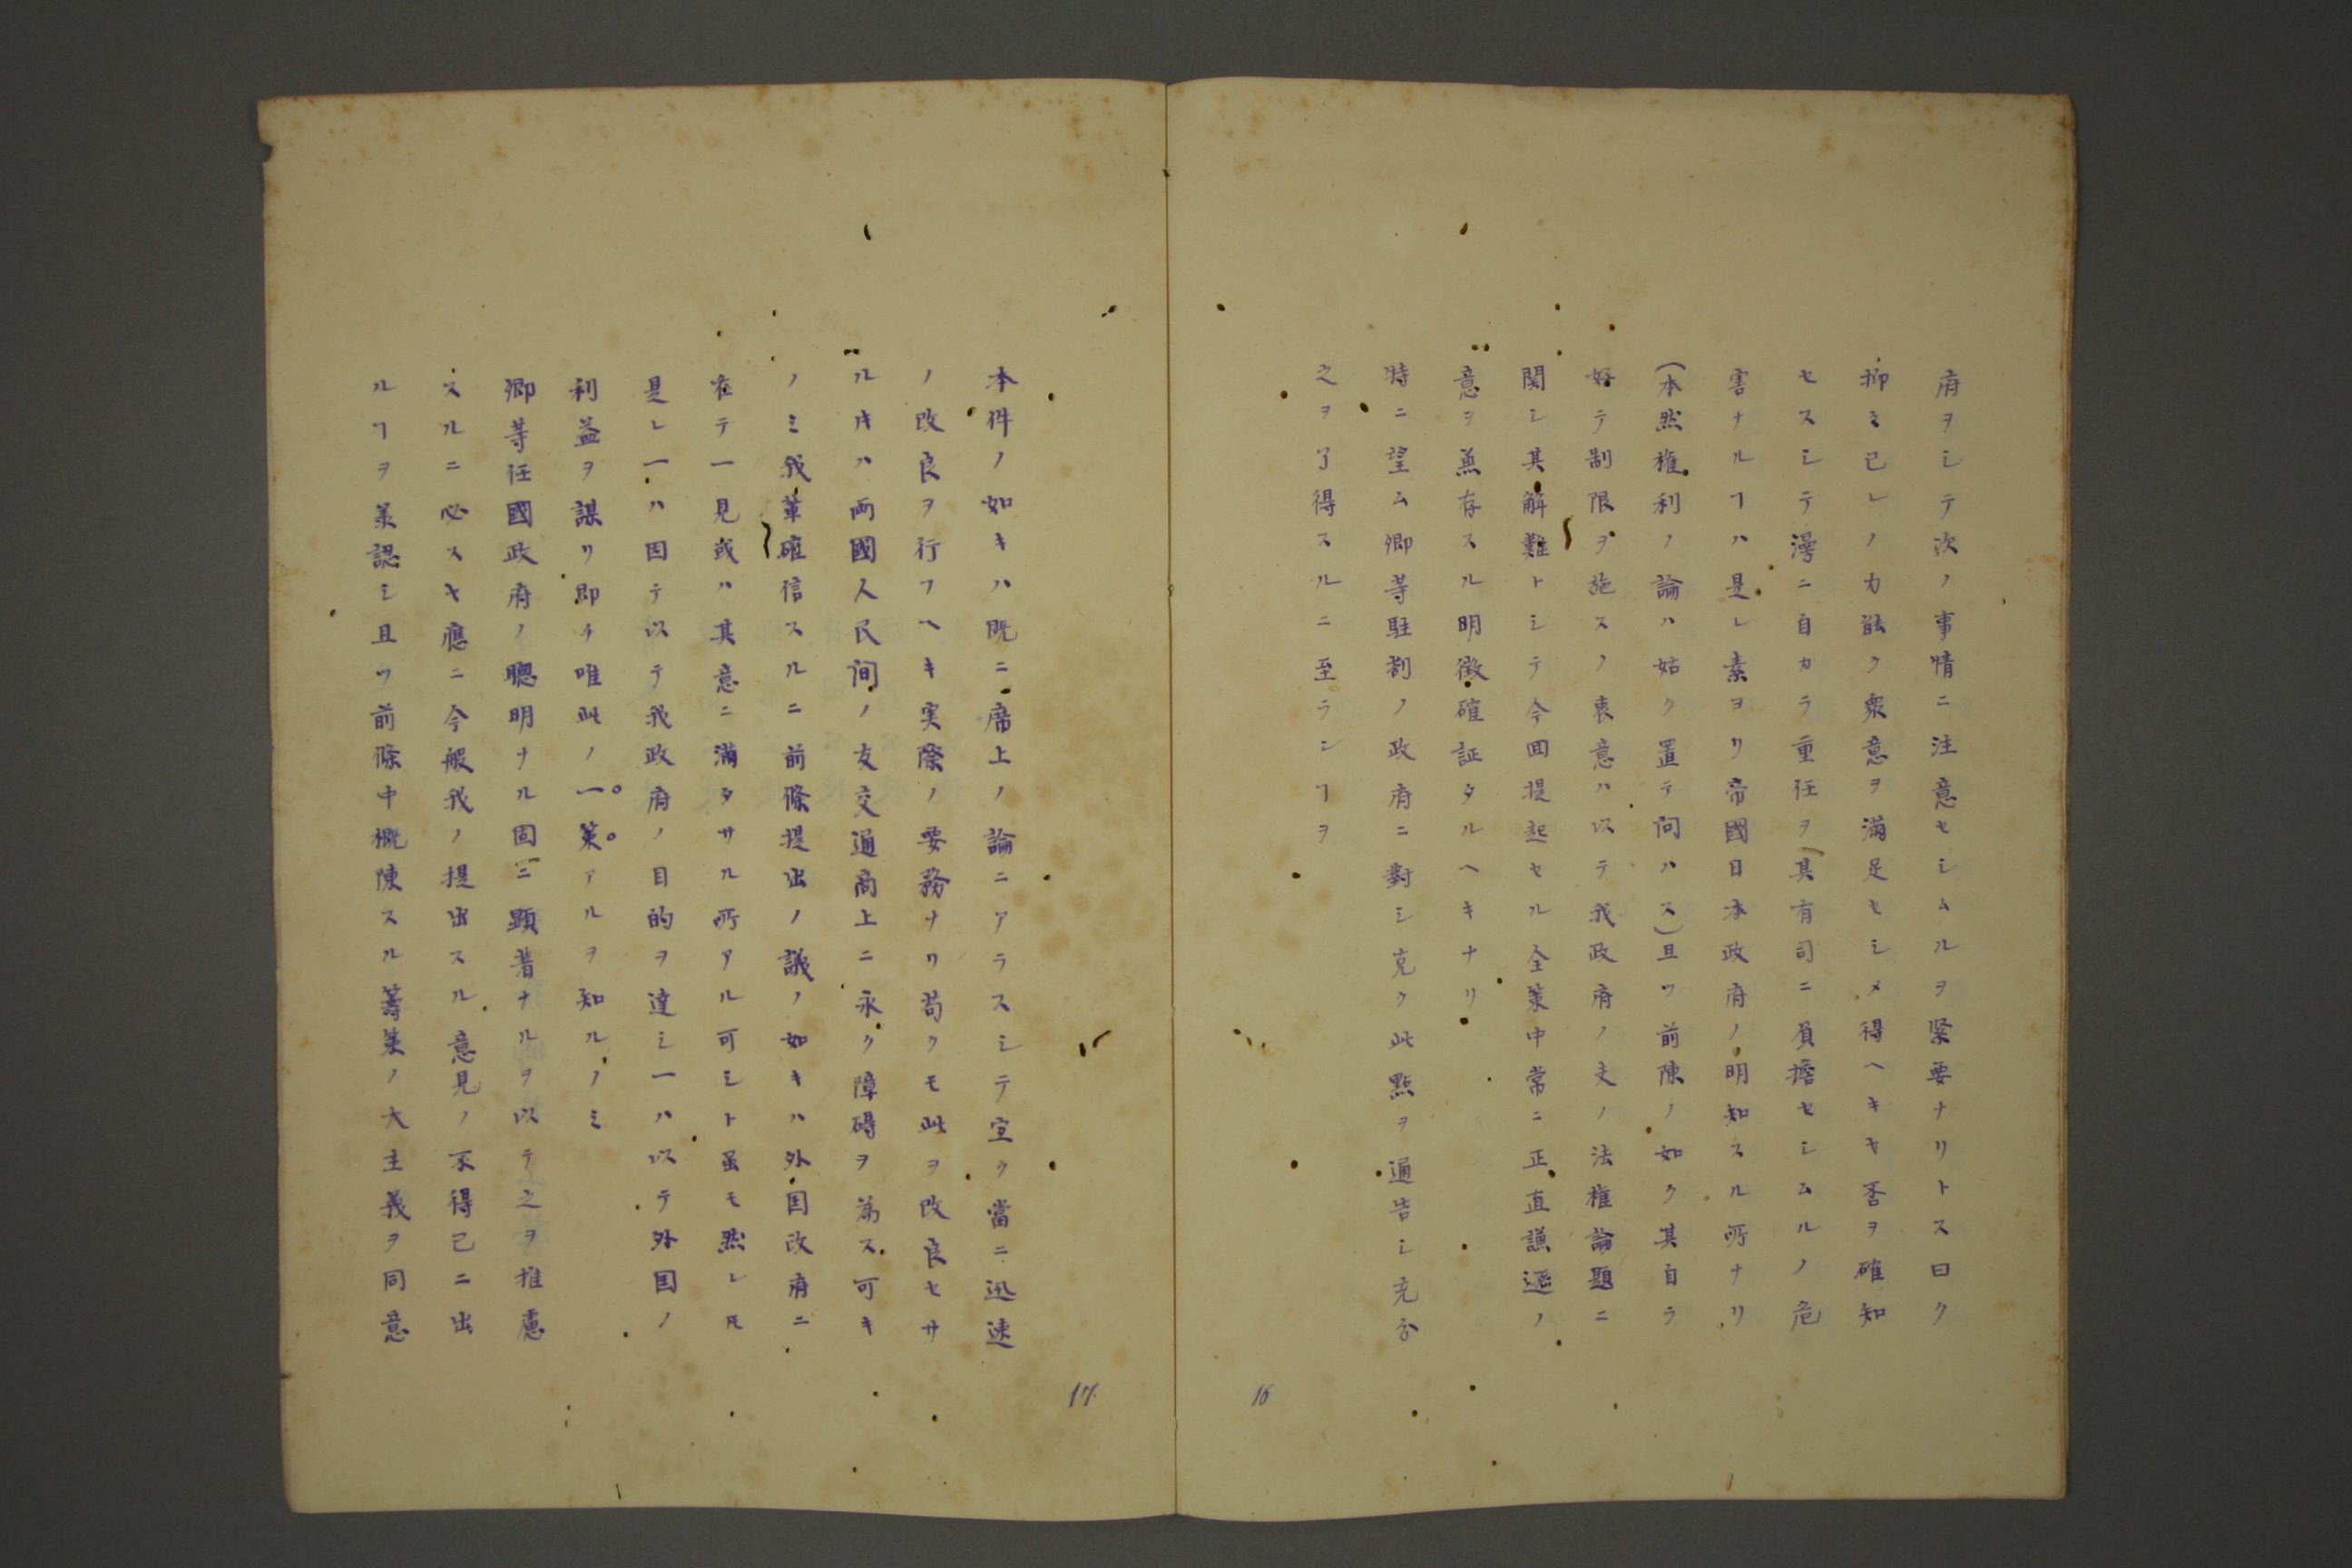 府ヲシテ次ノ事情ニ注意セシムルヲ緊要ナリトス曰ク
抑ミ已レノカ能ク衆意ヲ滿足セシメ得ヘキヤ否ヲ確知
セスシテ漫ニ自カラ重任ヲ其有司ニ負擔セシムルノ危
害ナルヿハ是レ素ヨリ帝國日本政府ノ明知スル所ナリ
(本然権利ノ論ハ姑ク置テ問ハス)且ツ前陳ノ如ク其自ラ
好テ制限ヲ施スノ衷意ハ以テ我政府ノ夫ノ法権論題ニ
関シ其解難トシテ今回提起セル全策中常ニ正直謙遜ノ
意ヲ兼存スル明徴確証タルヘキナリ
特ニ望ム卿等駐劄ノ政府ニ對シ克ク此點ヲ通告シ充分
之ヲ了得スルニ至ランヿヲ
16
本件ノ如キハ既ニ席上ノ論ニアラスシテ宜ク當ニ迅速
ノ改良ヲ行フヘキ実際ノ要務ナリ苟クモ此ヲ改良セサ
ル片ハ両國人民间ノ友交通商上ニ永ク障碍ヲ為ス可キ
ノミ我輩確信スルニ前條提出ノ議ノ如キハ外国政府ニ
在テ一見或ハ其意ニ滿タサル所アル可シト虽モ然レ𪜈
是レ一ハ因テ以テ我政府ノ目的ヲ達シ一ハ以テ外国ノ
利益ヲ謀リ即チ唯此ノ一策アルヲ知ルノミ
卿等任國政府ノ聰明ナル固ニ顕著ナルヲ以テ之ヲ推慮
スルニ必スヤ應ニ今般我ノ提出スル意見ノ不得已ニ出
ルヿヲ羕認シ且ツ前條中概陳スル籌策ノ大主義ヲ同意
17